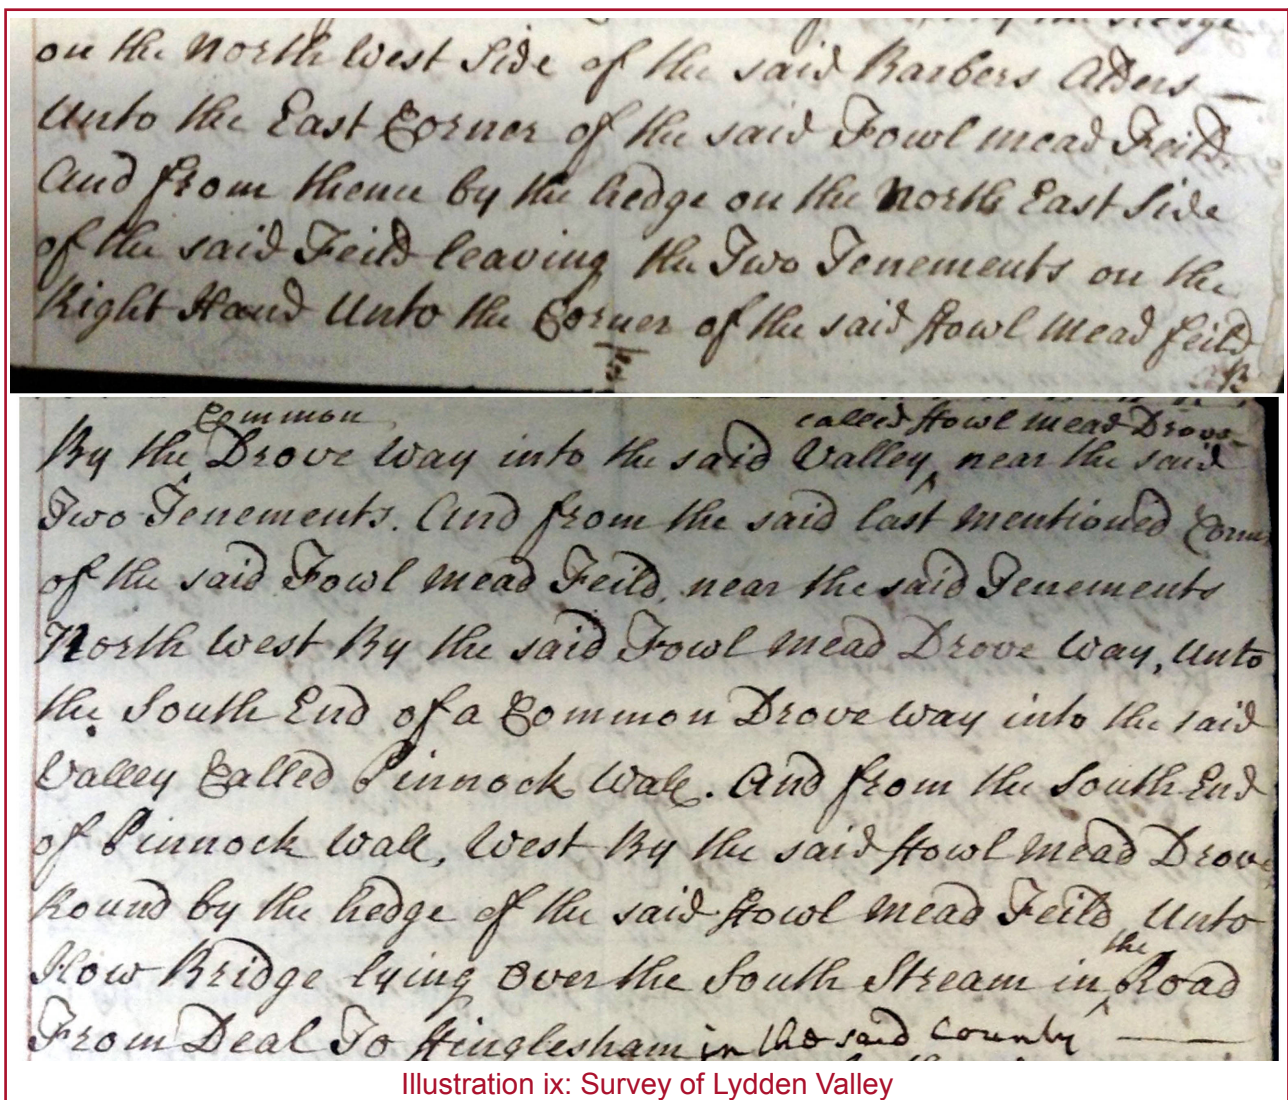 on the North West Side of the said Barbers Alders —
Unto the East Corner of the said Fowl mead Feild.
And from thence by the hedge on the North East Side
of the said Feild leaving the Two Tenements on the
Right Hand Unto the Corner of the said Fowl Mead feild
By the Common Drove Way into the said Valley called Fowl Mead Drove near the said
Two Tenements. And from the said last mentioned Corner
of the said Fowl Mead Feild, near the said Tenements
North West By the said Fowl Mead Drove Way, Unto
the South End of a Common Drove way into the said
Valley Called Pinnock Wall. And from the South End
of Pinnock Wall, West By the said Fowl Mead Drove
Round by the hedge of the said Fowl Mead Feild, Unto
How Bridge lying Over the South Stream in the Road
From Deal To Finglesham in the said County —
Illustration ix: Survey of Lydden Valley